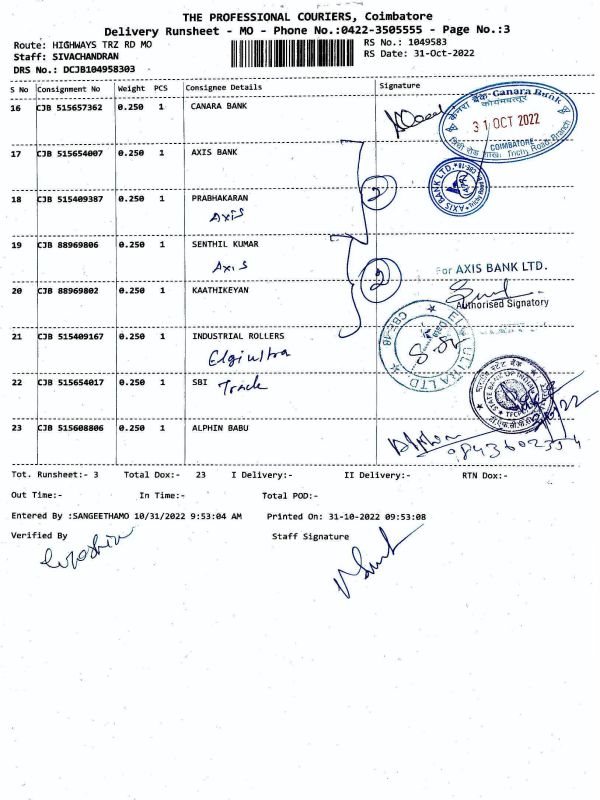 THE PROFESSIONAL COURIERS, Coimbatore
Delivery Runsheet - MO - Phone No.:0422-3505555 - Page No.:3
Route: HIGHWAYS TRZ RD MO
RS No.: 1049583
Staff: SIVACHANDRAN
RS Date: 31-Oct-2022
DRS No.: DCJB104958303
S No Consignment No Weight PCS Consignee Details Signature
16 CJB 515657362 0.250 1 CANARA BANK
केनरा बैंक-Canara Bank
31 OCT 2022
COIMBATORE
17 CJB 515654007 0.250 1 AXIS BANK
AXIS BANK LTD.
18 CJB 515409387 0.250 1 PRABHAKARAN
Axis
2
19 CJB 88969806 0.250 1 SENTHIL KUMAR
Axis
2
For AXIS BANK LTD.
20 CJB 88969802 0.250 1 KAATHIKEYAN
Authorised Signatory
21 CJB 515409167 0.250 1 INDUSTRIAL ROLLERS
Elgiultra
CBE-18
22 CJB 515654017 0.250 1 SBI
Track
STATE BANK OF INDIA
23 CJB 515608806 0.250 1 ALPHIN BABU
Tot. Runsheet:- 3 Total Dox:- 23 I Delivery:- II Delivery:- RTN Dox:-
Out Time:- In Time:- Total POD:-
Entered By :SANGEETHAMO 10/31/2022 9:53:04 AM Printed On: 31-10-2022 09:53:08
Verified By Staff Signature